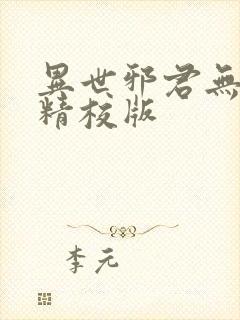 異世邪君無
精校版
李元